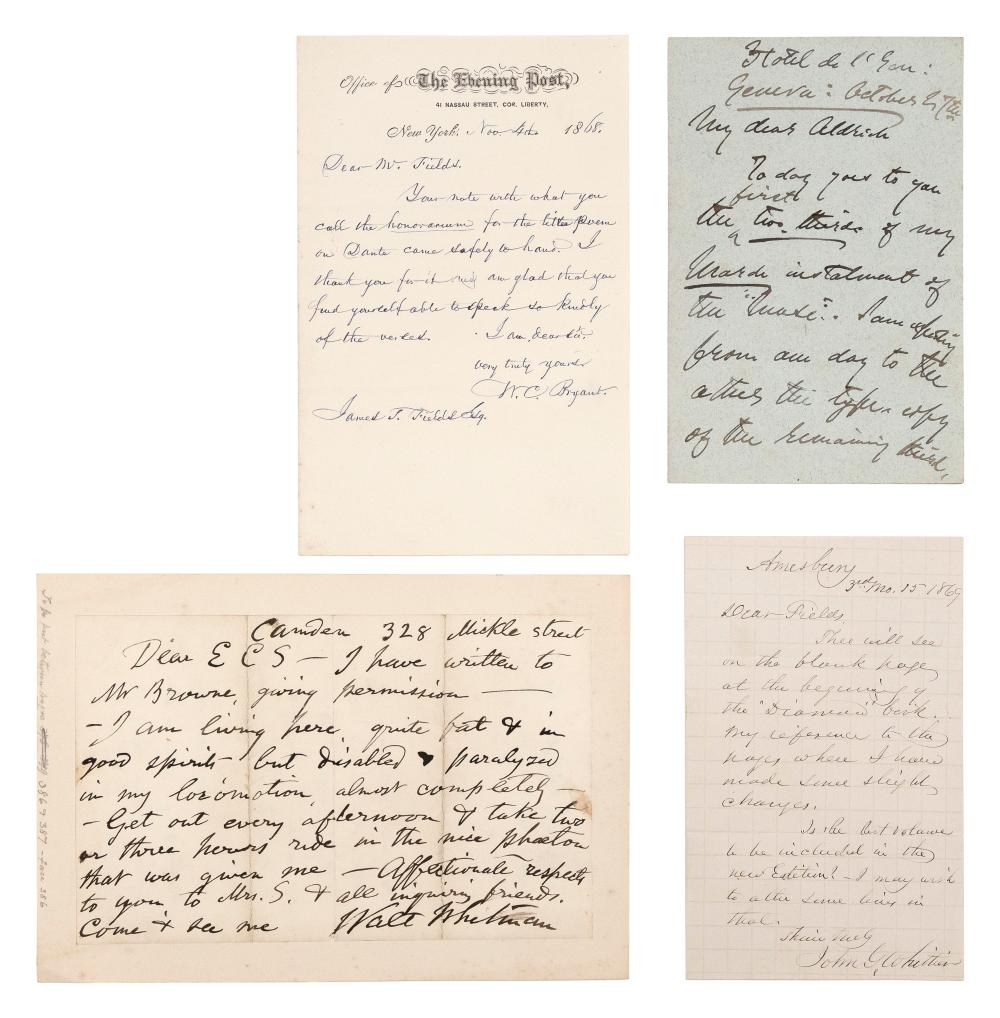 Office of The Evening Post,
41 NASSAU STREET, COR. LIBERTY,
New York, Nov. 4th 1868.
Dear Mr. Fields.
Your note with what you
call the honorarium for the little poem
on Dante came safely to hand. I
thank you for it and am glad that you
find yourself able to speak so kindly
of the verses. I am, dear sir,
very truly yours
W. C. Bryant.
James T. Fields Esq.
Hotel de l'Ecu:
Geneva: October
My dear Aldrich
To day goes to you
first
the two-thirds of my
March instalment of
the "Muse". I am expecting
from one day to the
other the type-copy
of the remaining third,
Camden 328 Mickle street
Dear E C S — I have written to
Mr Browne, giving permission —
— I am living here, quite fat & in
good spirits but disabled & paralyzed
in my locomotion almost completely —
— Get out every afternoon & take two
or three hours ride in the nice phæton
that was given me — Affectionate respects
to you to Mrs. S. & all inquiring friends.
Come & see me Walt Whitman
To be put between
386 & 387
Amesbury
3rd Mo. 15 1869
Dear Fields,
Thee will see
on the blank page
at the beginning of
the "Diamond" book
my reference to the
pages where I have
made some slight
changes.
Is the last volume
to be included in the
new Edition? — I may wish
to alter some lines in
that.
Thine truly
John G. Whittier